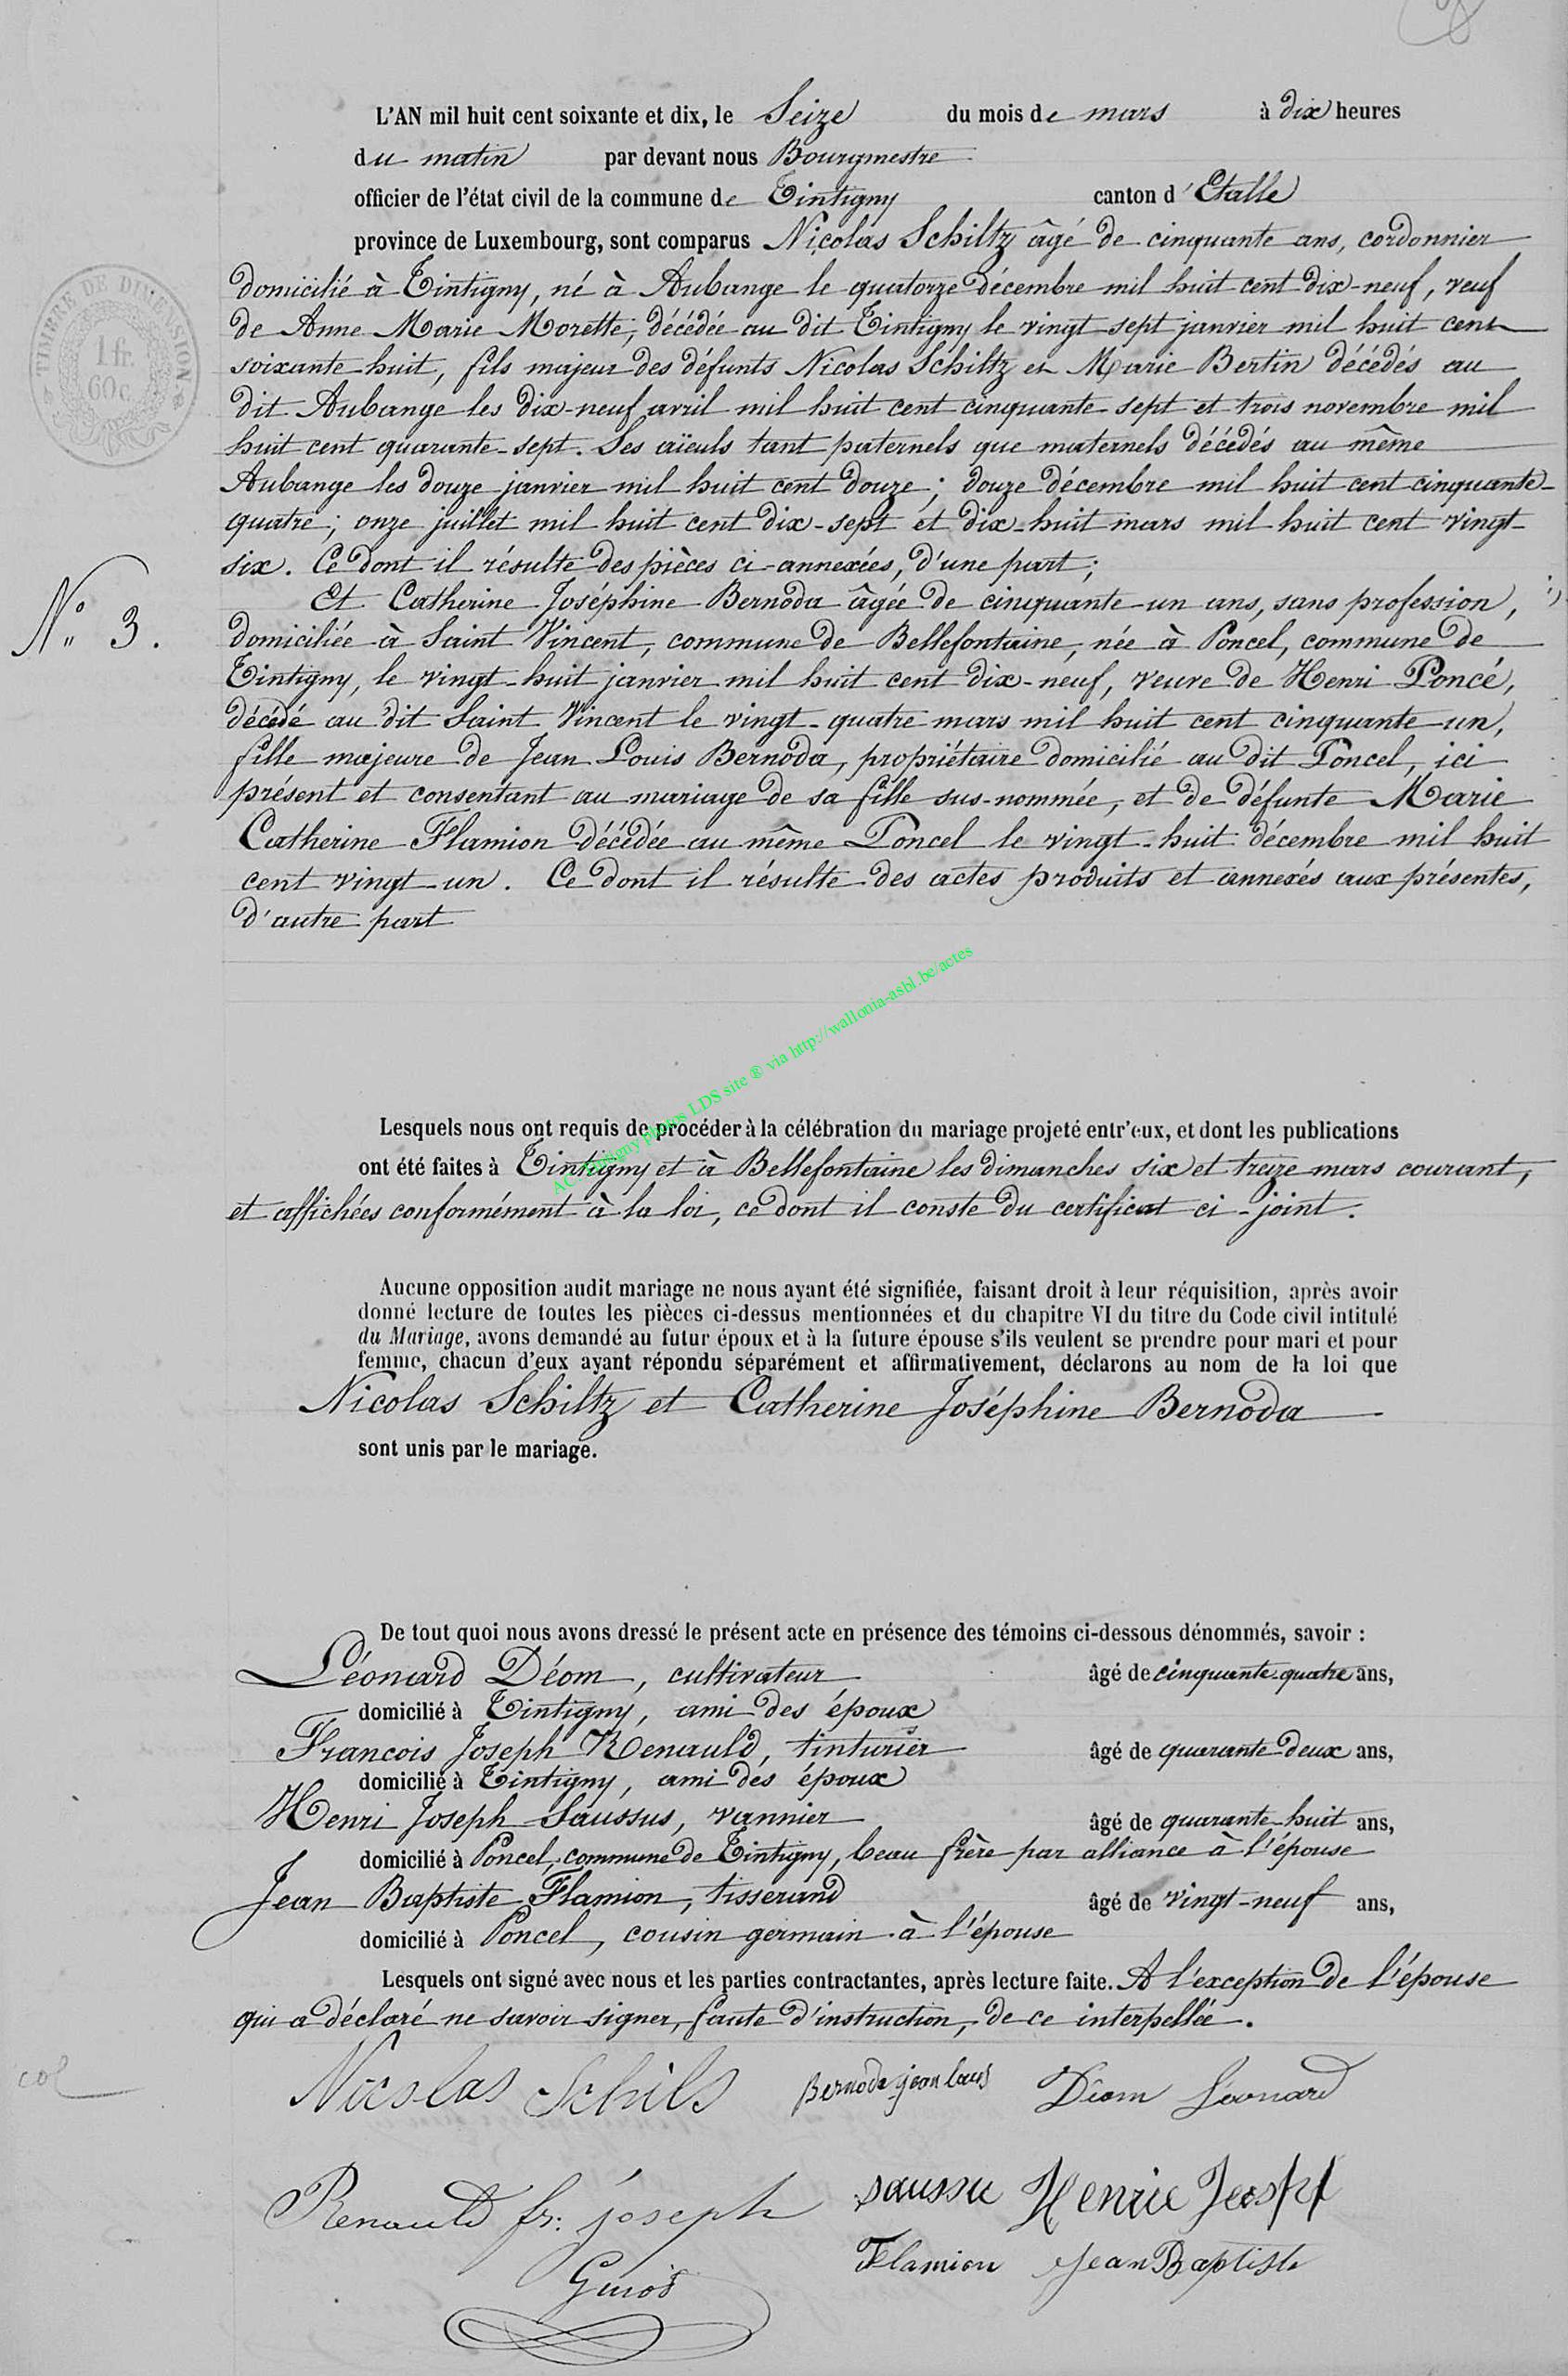 L'AN mil huit cent soixante et dix, le Seize du mois de mars à dix heures
du matin par devant nous Bourgmestre
officier de l'état civil de la commune de Tintigny canton d'Etalle
province de Luxembourg, sont comparus Nicolas Schiltz âgé de cinquante ans, cordonnier
domicilié à Tintigny, né à Aubange le quatorze décembre mil huit cent dix-neuf, veuf
de Anne Marie Morette, décédée au dit Tintigny le vingt-sept janvier mil huit cent
TIMBRE DE DIMENSION
1 fr.
60 c.
soixante-huit, fils majeur des défunts Nicolas Schiltz et Marie Bertin décédés au
dit Aubange les dix-neuf avril mil huit cent cinquante-sept et trois novembre mil
huit cent quarante-sept. Ses aïeuls tant paternels que maternels décédés au même
Aubange les douze janvier mil huit cent douze; douze décembre mil huit cent cinquante-
quatre; onze juillet mil huit cent dix-sept et dix-huit mars mil huit cent vingt-
six. Ce dont il résulte des pièces ci-annexées, d'une part;
N° 3.
Et Catherine Joséphine Bernoda âgée de cinquante-un ans, sans profession,
domiciliée à Saint Vincent, commune de Bellefontaine, née à Poncel, commune de
Tintigny, le vingt-huit janvier mil huit cent dix-neuf, veuve de Henri Poncé,
décédé au dit Saint Vincent le vingt-quatre mars mil huit cent cinquante-un,
fille majeure de Jean Louis Bernoda, propriétaire domicilié au dit Poncel, ici
présent et consentant au mariage de sa fille sus-nommée, et de défunte Marie
Catherine Flamion décédée au même Poncel le vingt-huit décembre mil huit
cent vingt-un. Ce dont il résulte des actes produits et annexés aux présentes,
d'autre part
AC Tintigny photos LDS site ® via http://wallonia-asbl.be/actes
Lesquels nous ont requis de procéder à la célébration du mariage projeté entr'eux, et dont les publications
ont été faites à Tintigny et à Bellefontaine les dimanches six et treize mars courant,
et affichées conformément à la loi, ce dont il conste du certificat ci-joint.
Aucune opposition audit mariage ne nous ayant été signifiée, faisant droit à leur réquisition, après avoir
donné lecture de toutes les pièces ci-dessus mentionnées et du chapitre VI du titre du Code civil intitulé
du Mariage, avons demandé au futur époux et à la future épouse s'ils veulent se prendre pour mari et pour
femme, chacun d'eux ayant répondu séparément et affirmativement, déclarons au nom de la loi que
Nicolas Schiltz et Catherine Joséphine Bernoda
sont unis par le mariage.
De tout quoi nous avons dressé le présent acte en présence des témoins ci-dessous dénommés, savoir :
Léonard Déom, cultivateur âgé de cinquante-quatre ans,
domicilié à Tintigny, ami des époux
François Joseph Renauld, tinturier âgé de quarante-deux ans,
domicilié à Tintigny, ami des époux
Henri Joseph Saussus, vannier âgé de quarante-huit ans,
domicilié à Poncel, commune de Tintigny, beau frère par alliance à l'épouse
Jean Baptiste Flamion, tisserand âgé de vingt-neuf ans,
domicilié à Poncel, cousin germain à l'épouse
Lesquels ont signé avec nous et les parties contractantes, après lecture faite. A l'exception de l'épouse
qui a déclaré ne savoir signer, faute d'instruction, de ce interpellée.
col
Nicolas Schils Bernoda jean louis Déom Léonard
Renauld fr: joseph saussu Henrie Joseph
Flamion Jean Baptiste